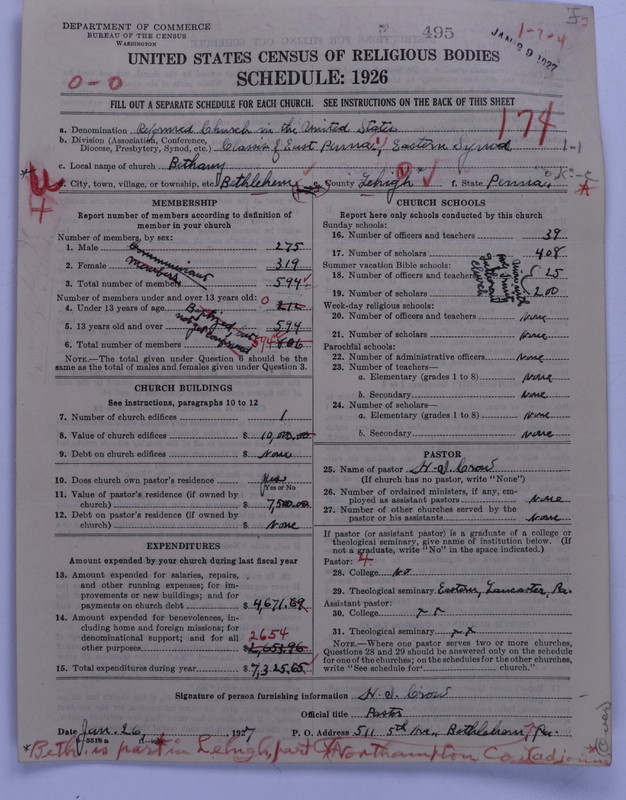 DEPARTMENT OF COMMERCE
BUREAU OF THE CENSUS
WASHINGTON
495
JAN 29 1927
1-7-4
UNITED STATES CENSUS OF RELIGIOUS BODIES
SCHEDULE: 1926
0-0
FILL OUT A SEPARATE SCHEDULE FOR EACH CHURCH. SEE INSTRUCTIONS ON THE BACK OF THIS SHEET
174
a. Denomination Reformed Church in the United States
b. Division (Association, Conference, Diocese, Presbytery, Synod, etc.) Classis of East Penna., Eastern Synod
1-1
c. Local name of church Bethany
d. City, town, village, or township, etc. Bethlehem e. County Lehigh f. State Penna.
MEMBERSHIP
Report number of members according to definition of
member in your church
Number of members, by sex:
1. Male 275
2. Female 319
Communicant members
3. Total number of members 594
Number of members under and over 13 years old:
4. Under 13 years of age 0 212
Baptized, but not yet confirmed
5. 13 years old and over 594
6. Total number of members 594 806
NOTE.—The total given under Question 6 should be the
same as the total of males and females given under Question 3.
CHURCH BUILDINGS
See instructions, paragraphs 10 to 12
7. Number of church edifices 1
8. Value of church edifices $ 10,000.00
9. Debt on church edifices $ None
10. Does church own pastor's residence Yes
(Yes or No)
11. Value of pastor's residence (if owned by
church) $ 7,500.00
12. Debt on pastor's residence (if owned by
church) $ None
EXPENDITURES
Amount expended by your church during last fiscal year
13. Amount expended for salaries, repairs,
and other running expenses; for im-
provements or new buildings; and for
payments on church debt $ 4,671.69
14. Amount expended for benevolences, in-
cluding home and foreign missions; for
denominational support; and for all
other purposes 2654 $ 2,653.96
15. Total expenditures during year $ 7,325.65
CHURCH SCHOOLS
Report here only schools conducted by this church
Sunday schools:
16. Number of officers and teachers 39
17. Number of scholars 408
Summer vacation Bible schools:
18. Number of officers and teachers 25
19. Number of scholars 200
Week-day religious schools:
20. Number of officers and teachers None
21. Number of scholars None
Parochial schools:
22. Number of administrative officers None
23. Number of teachers—
a. Elementary (grades 1 to 8) None
b. Secondary None
24. Number of scholars—
a. Elementary (grades 1 to 8) None
b. Secondary None
PASTOR
25. Name of pastor H. I. Crow
(If church has no pastor, write "None")
26. Number of ordained ministers, if any, em-
ployed as assistant pastors None
27. Number of other churches served by the
pastor or his assistants None
If pastor (or assistant pastor) is a graduate of a college or
theological seminary, give name of institution below. (If
not a graduate, write "No" in the space indicated.)
Pastor: 4
28. College No
29. Theological seminary Eastern, Lancaster, Pa.
Assistant pastor:
30. College
31. Theological seminary
NOTE.—Where one pastor serves two or more churches,
Questions 28 and 29 should be answered only on the schedule
for one of the churches; on the schedules for the other churches,
write "See schedule for church."
Signature of person furnishing information H. I. Crow
Official title Pastor
Date Jan. 26 1927 P. O. Address 511 5th Ave., Bethlehem, Pa.
* Beth. is part in Lehigh, part Northampton Co
(over)